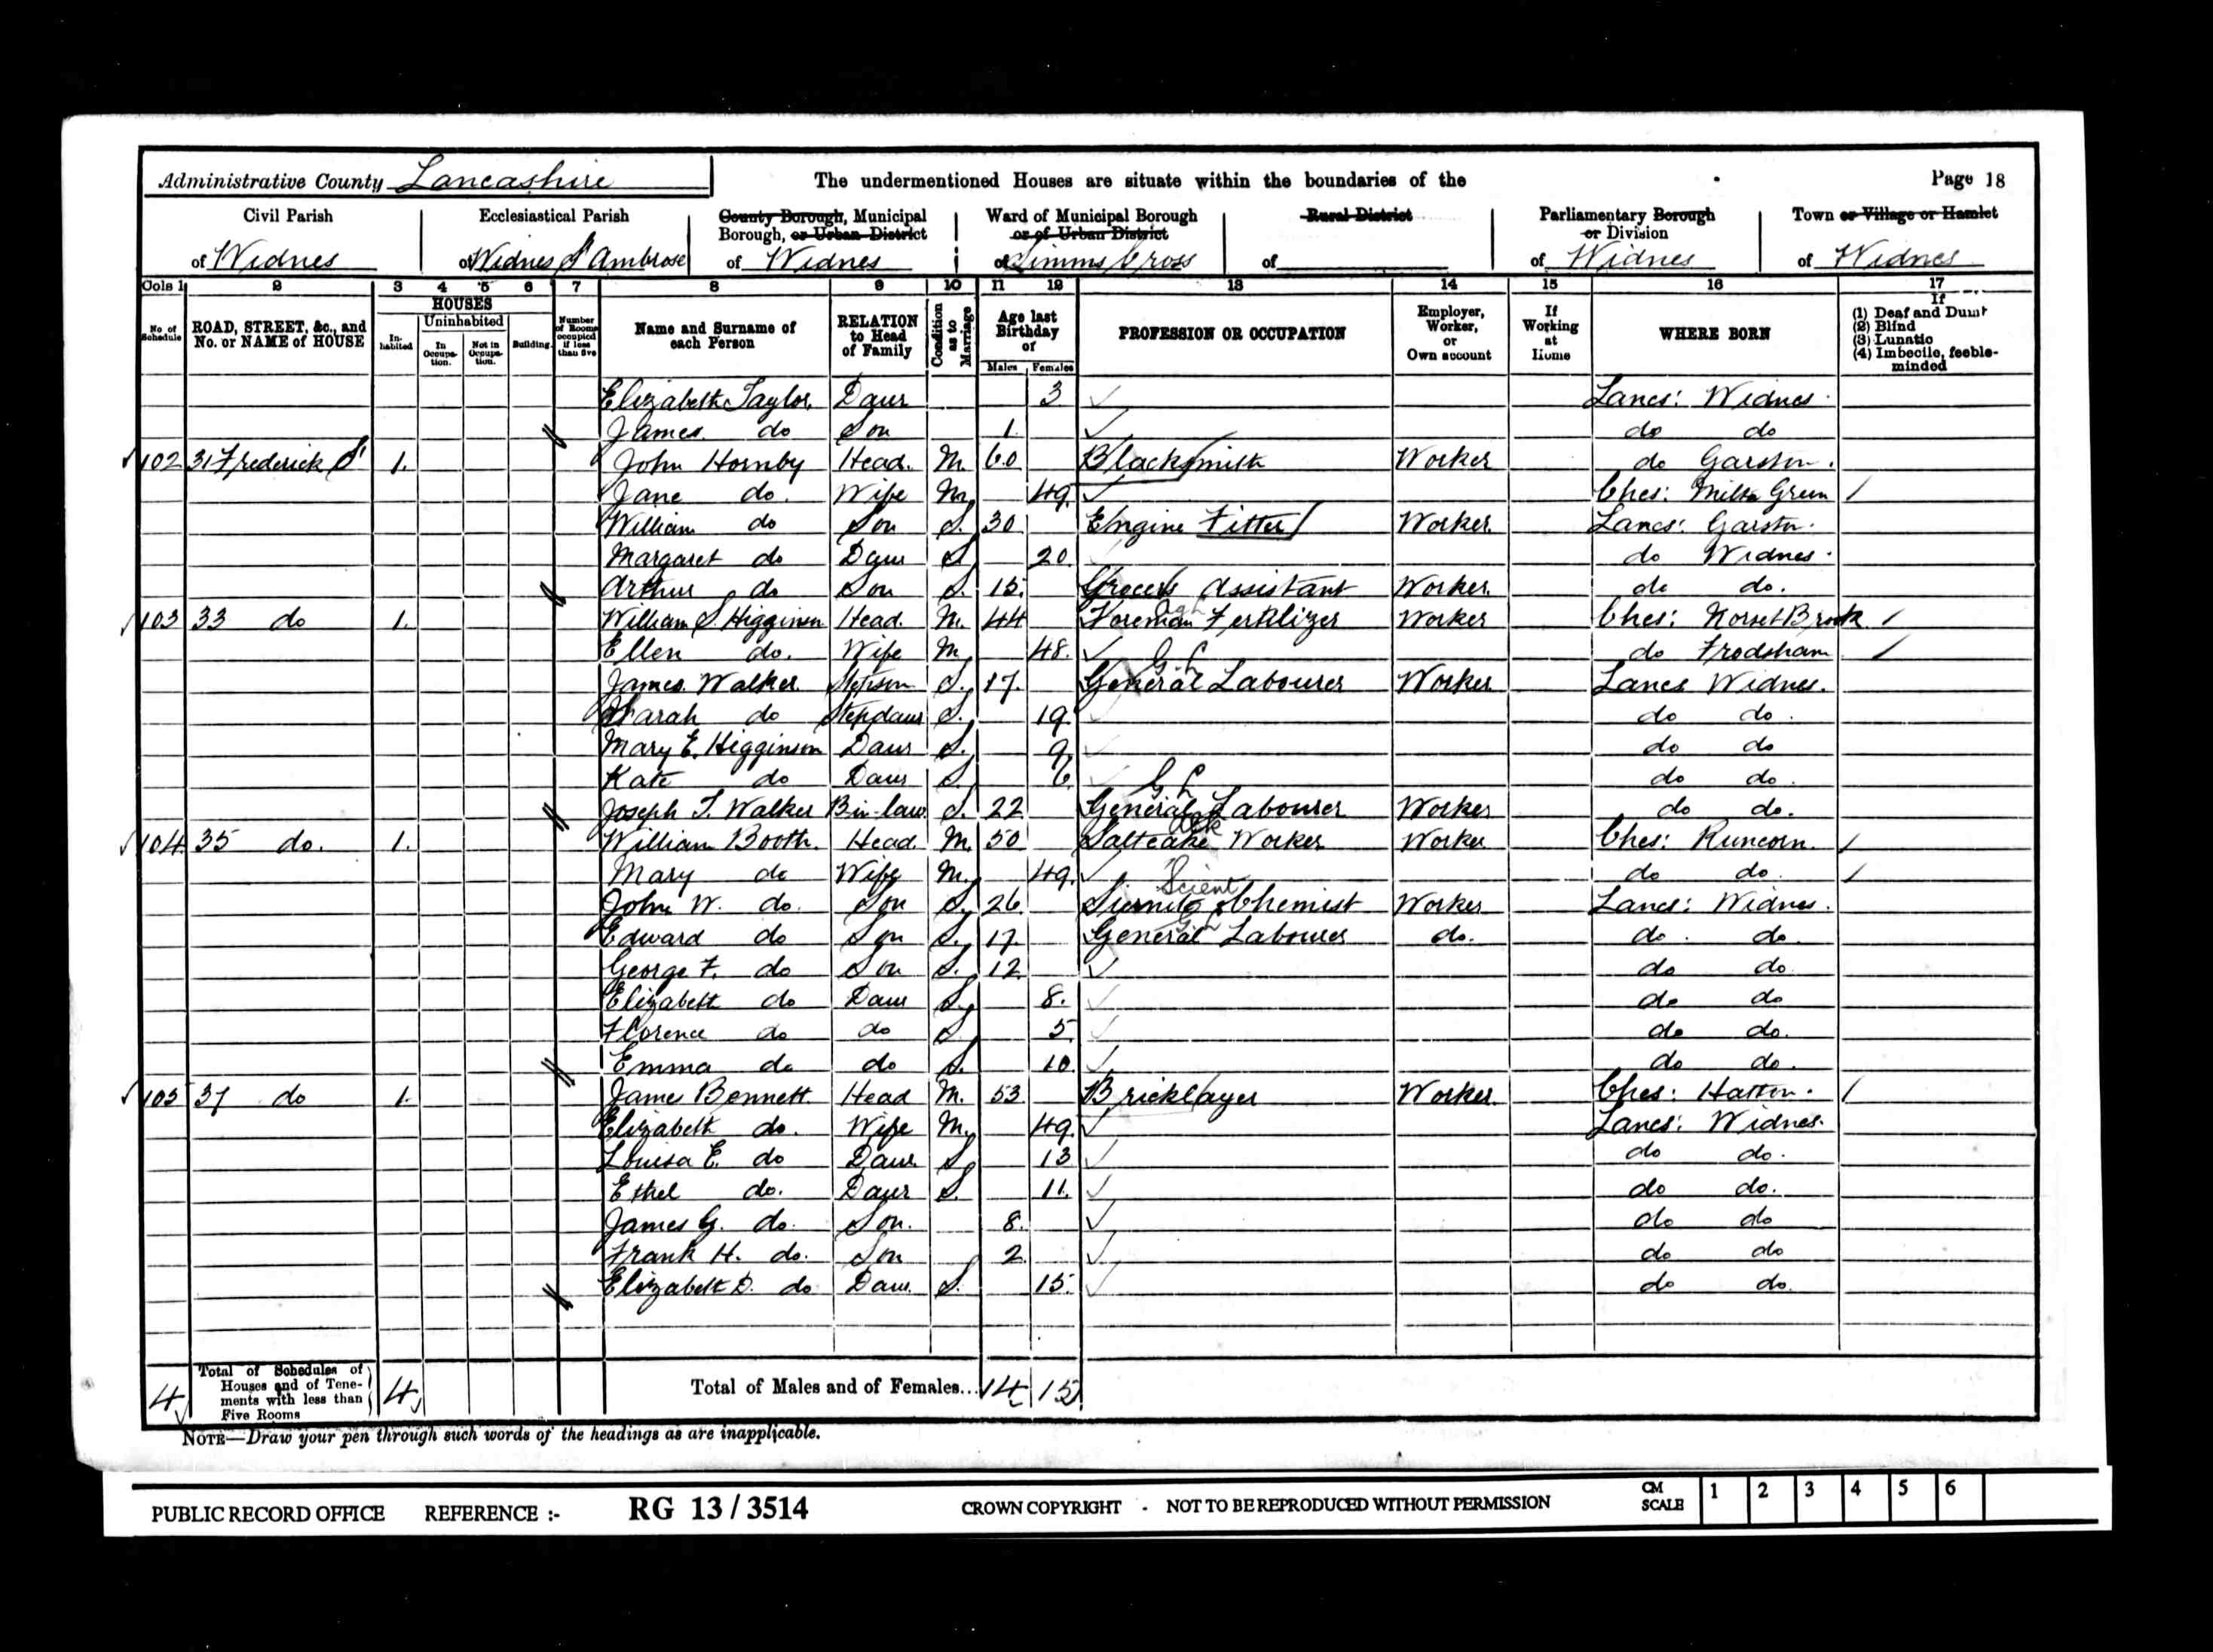 Administrative County Lancashire The undermentioned Houses are situate within the boundaries of the Page 18
Civil Parish of Widnes
Ecclesiastical Parish of Widnes St Ambrose
County Borough, Municipal Borough, or Urban District of Widnes
Ward of Municipal Borough or of Urban District of Simms Cross
Rural District of
Parliamentary Borough or Division of Widnes
Town or Village or Hamlet of Widnes
Cols 1 2 3 4 5 6 7 8 9 10 11 12 13 14 15 16 17
No of Schedule
ROAD, STREET, &c., and No. or NAME of HOUSE
HOUSES
In-habited
Uninhabited
In Occupa-tion.
Not in Occupa-tion.
Building
Number of Rooms occupied if less than five
Name and Surname of each Person
RELATION to Head of Family
Condition as to Marriage
Age last Birthday of
Males Females
PROFESSION OR OCCUPATION
Employer, Worker, or Own account
If Working at Home
WHERE BORN
If
(1) Deaf and Dumb
(2) Blind
(3) Lunatic
(4) Imbecile, feeble-minded
Elizabeth Taylor Daur 3 Lancs: Widnes
James do Son 1 do do
102 31 Frederick St 1. John Hornby Head. M. 60 Blacksmith Worker do Garston.
Jane do. Wife M. 49 Ches: Green
William do Son S. 30 Engine Fitter Worker. Lancs: Garston.
Margaret do Daur S 20. do Widnes.
Arthur do Son S. 15. Grocers Assistant Worker. do do.
103 33 do 1. William S. Higginson Head. M. 44 Foreman Fertilizer Worker Ches: Brook
Ellen do. Wife M 48. do Frodsham
G. L
James Walker Stepson S. 17. General Labourer Worker Lancs Widnes.
Sarah do Stepdaur S. 19. do do.
Mary E. Higginson Daur S. 9 do do
Kate do Daur S. 6. do do.
G L
Joseph T. Walker B-in-law S. 22 General Labourer Worker do do.
104 35 do. 1. William Booth. Head M. 50 Saltcake Worker Worker Ches: Runcorn.
Mary do Wife M. 49. do do.
Scient
John W. do. Son S. 26 Chemist Worker Lancs: Widnes.
Edward do Son S. 17. General Labourer do. do. do.
George F. do Son S. 12 do do
Elizabeth do Daur S. 8. do do
Florence do do S 5 do do.
Emma do do S. 10. do do.
105 37 do 1. James Bennett Head M. 53 Bricklayer Worker Ches: Hatton.
Elizabeth do. Wife M. 49. Lancs: Widnes.
Louisa E. do Daur. S 13 do do.
Ethel do. Daur S. 11. do do.
James G. do. Son. 8. do do
Frank H. do. Son 2. do do
Elizabeth D. do Daur. S. 15. do do.
4 Total of Schedules of Houses and of Tene-ments with less than Five Rooms 4 Total of Males and of Females... 14 15
NOTE—Draw your pen through such words of the headings as are inapplicable.
PUBLIC RECORD OFFICE REFERENCE :- RG 13 / 3514 CROWN COPYRIGHT - NOT TO BE REPRODUCED WITHOUT PERMISSION CM SCALE 1 2 3 4 5 6